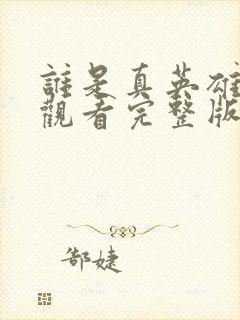 誰是真英雄
觀看完整版
郜婕